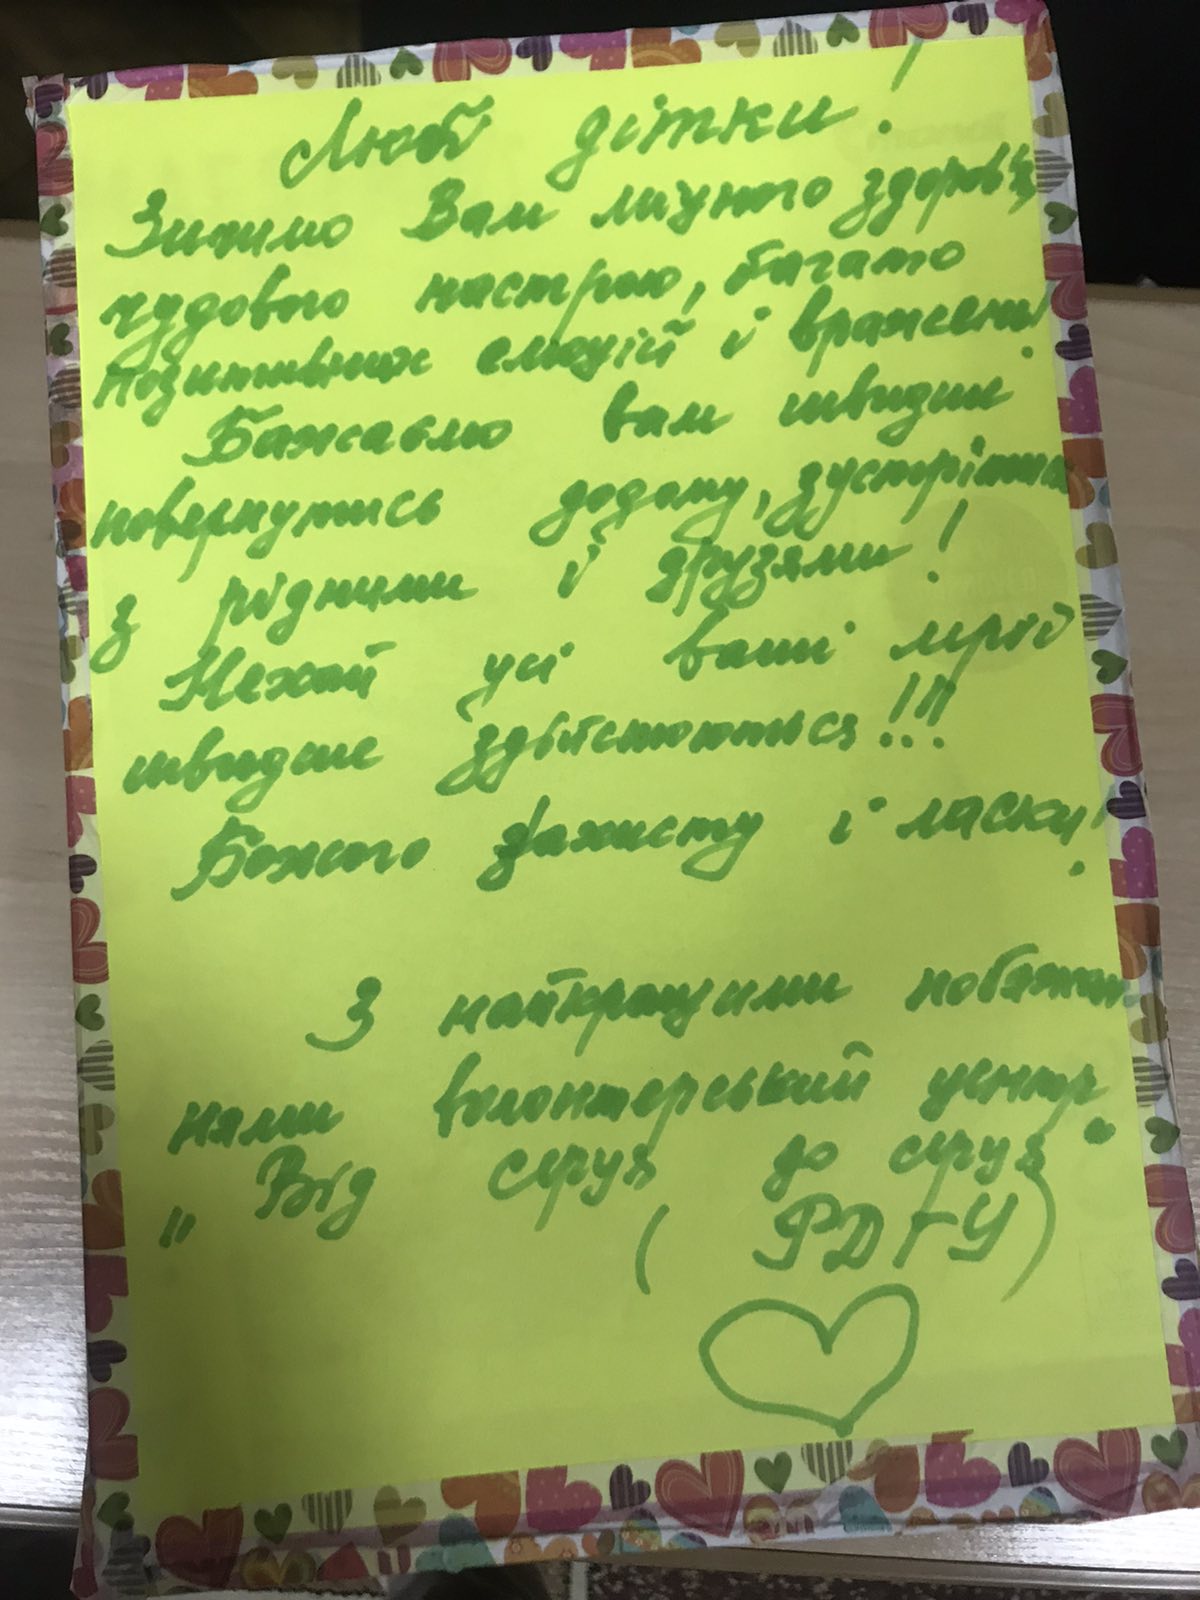 Любі дітки!
Зичимо Вам міцного здоров'я,
чудового настрою, багато
позитивних емоцій і вражень!
Бажаємо вам швидше
повернутись додому, зустрітись
з рідними і друзями!
Нехай усі ваші мрії
швидше здійснюються!!!
Божого захисту і ласки!
З найкращими побажан-
нями волонтерський центр
"Від серця до серця"
(РДГУ)